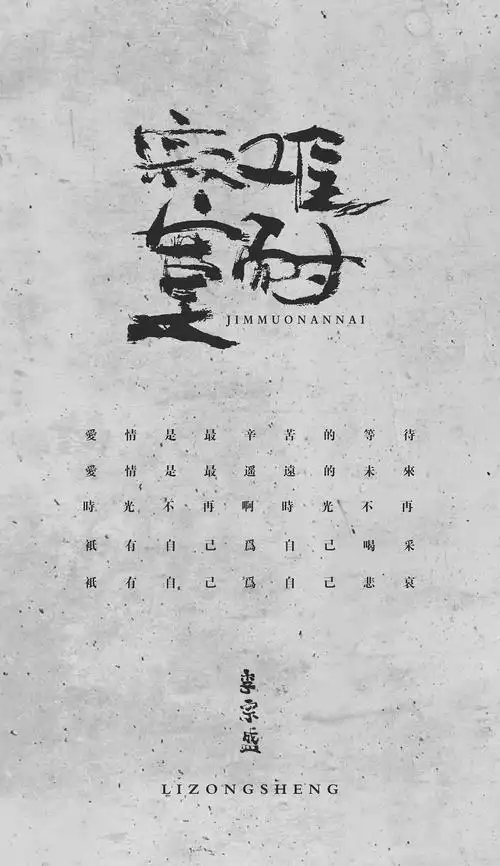 寂寞
难耐
JIMMUONANNAI
愛情是最辛苦的等待
愛情是最遥遠的未來
時光不再啊時光不再
衹有自己爲自己喝采
衹有自己爲自己悲哀
李宗盛
LIZONGSHENG